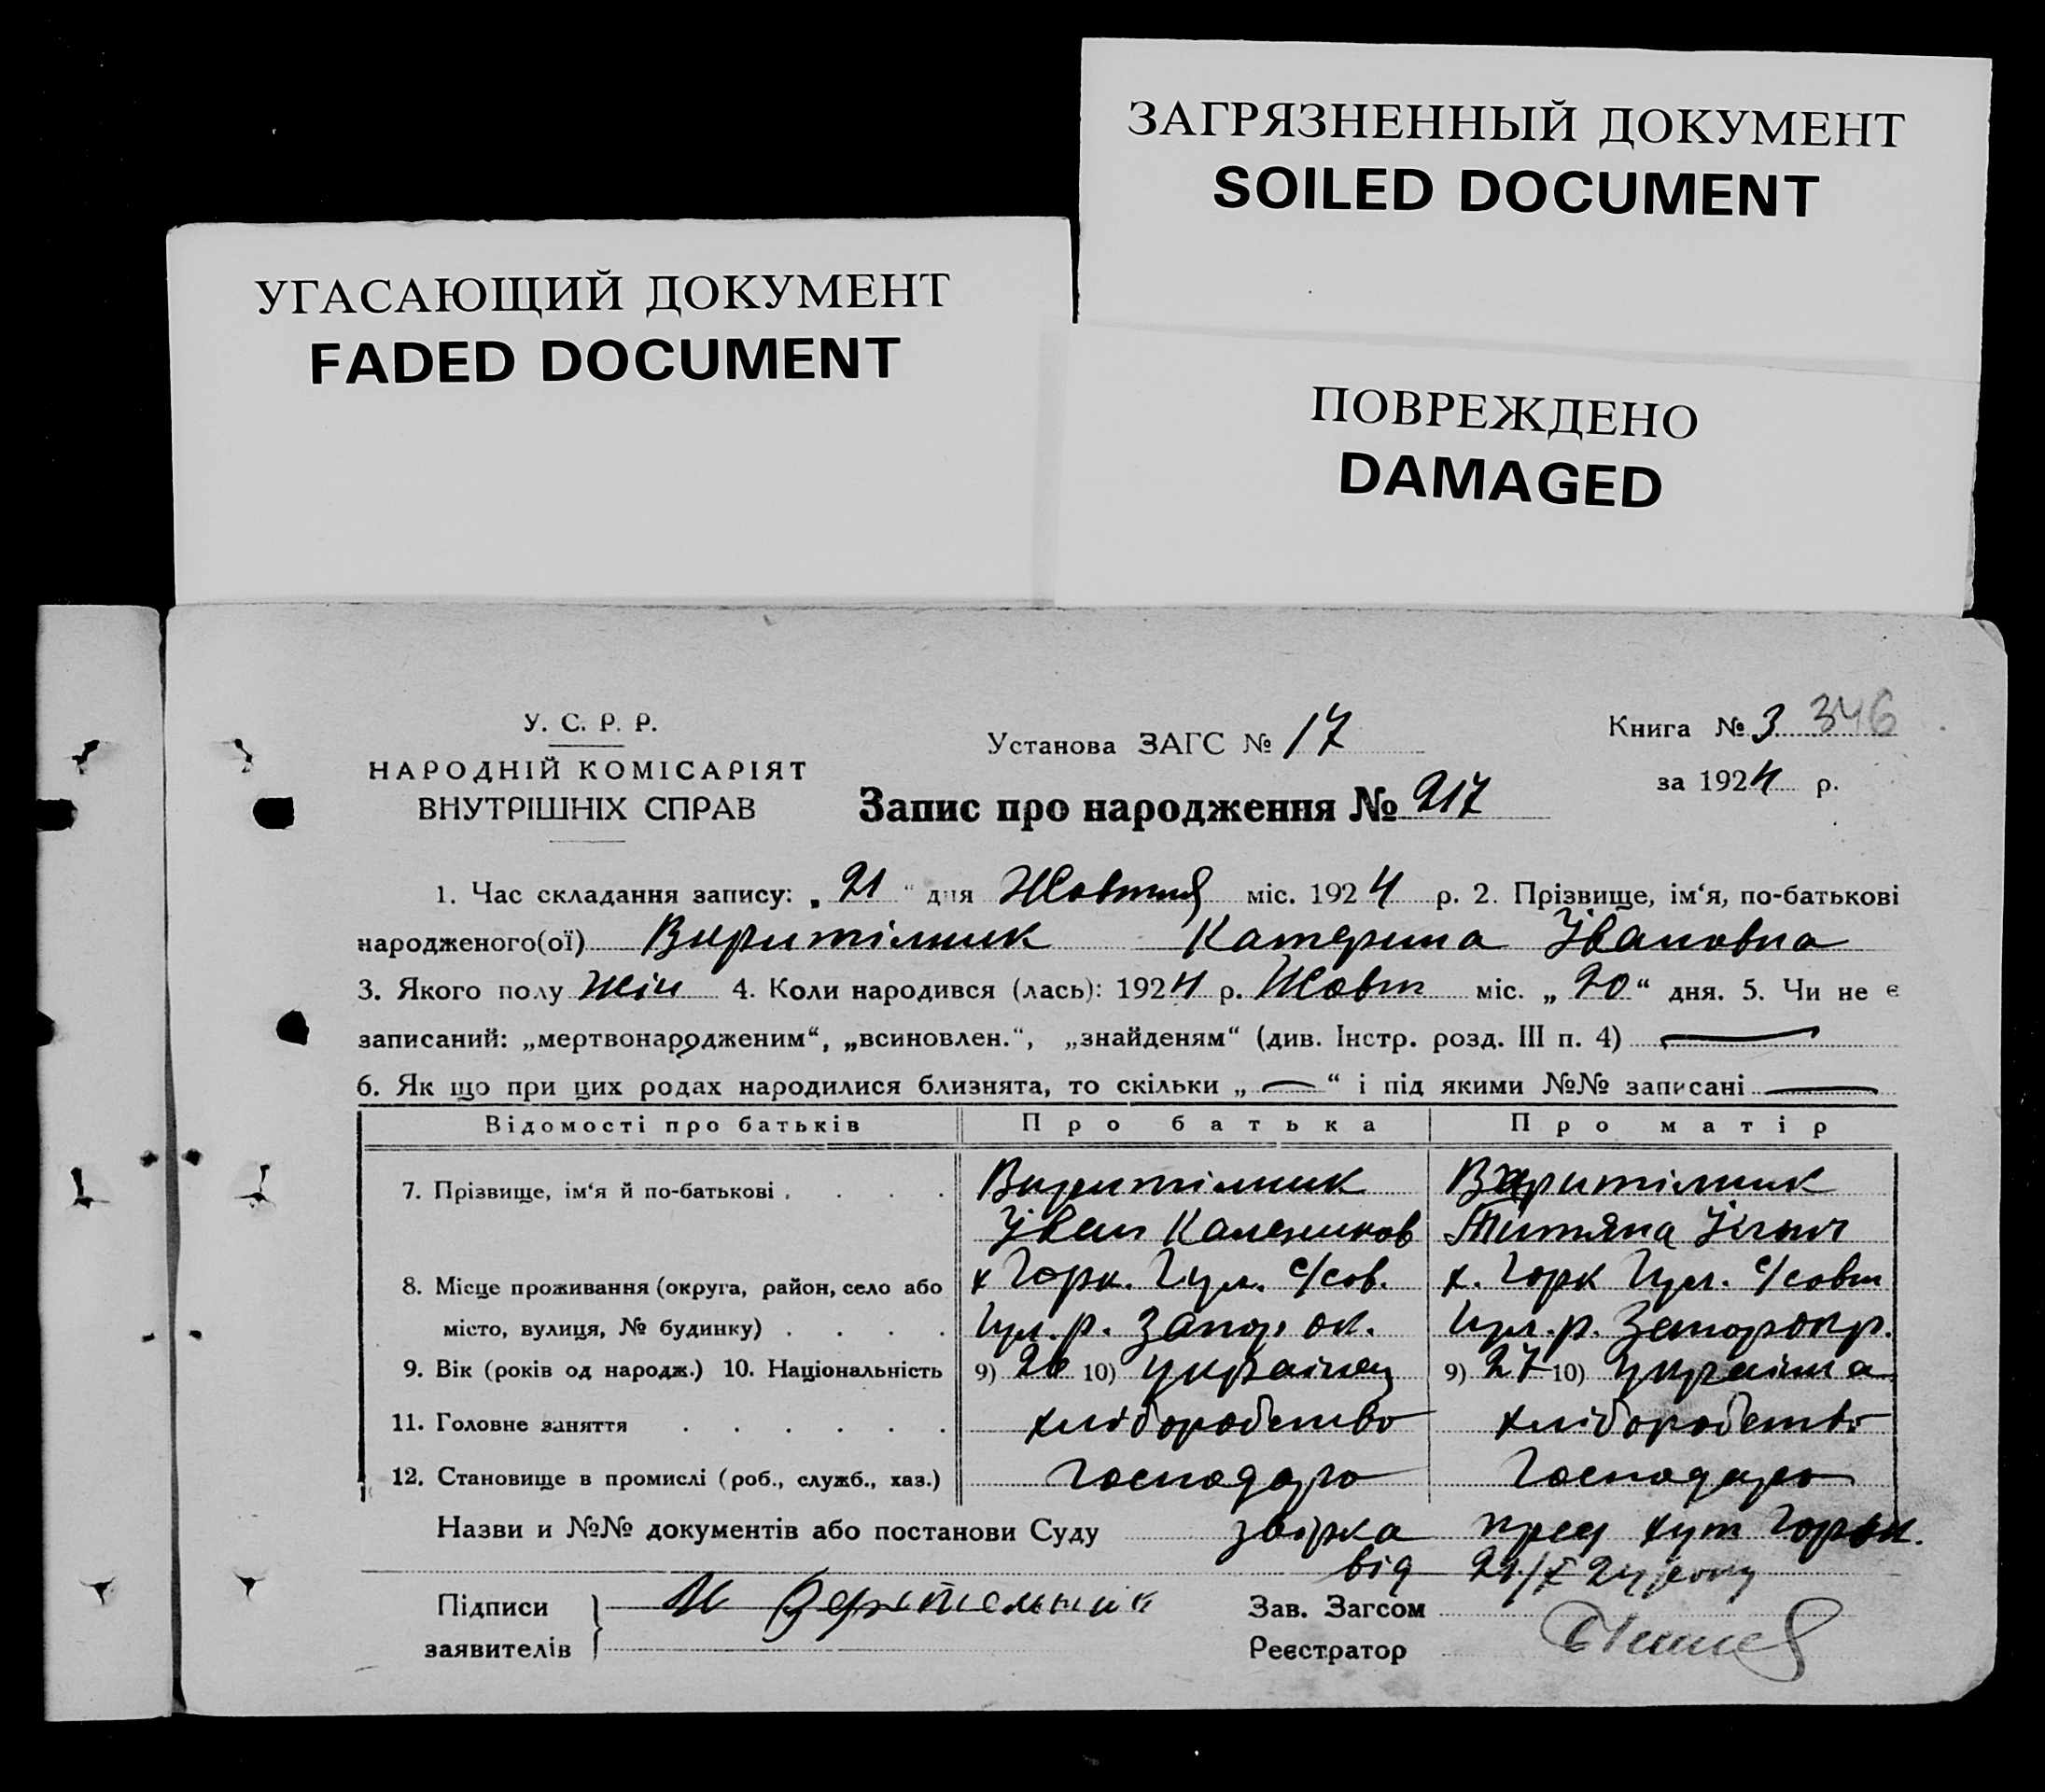 ЗАГРЯЗНЕННЫЙ ДОКУМЕНТ
SOILED DOCUMENT
УГАСАЮЩИЙ ДОКУМЕНТ
FADED DOCUMENT
ПОВРЕЖДЕНО
DAMAGED
У. С. Р. Р.
НАРОДНІЙ КОМІСАРІЯТ
ВНУТРІШНІХ СПРАВ
Установа ЗАГС № 17
Запис про народження № 217
Книга № 3 346
за 1924 р.
1. Час складання запису: „ 21 “ дня Жовтня міс. 1924 р. 2. Прізвище, ім‘я, по-батькові
народженого(ої) Виритілник Катерина Івановна
3. Якого полу жін 4. Коли народився (лась): 1924 р. Жовт міс. „ 20 “ дня. 5. Чи не є
записаний: „мертвонародженим“, „всиновлен.“, „знайденям“ (див. Інстр. розд. III п. 4) —
6. Як що при цих родах народилися близнята, то скільки „ — “ і під якими №№ записані —
Відомості про батьків Про батька Про матір
7. Прізвище, ім‘я й по-батькові . . . . Виритілник Виритілник
Іван Калеников Титяна
8. Місце проживання (округа, район, село або х Горк. Гул. с/сов. х. Горк Гул. с/совт
місто, вулиця, № будинку) . . . . Гул. р. Запор ок. Гул. р. Запор окр.
9. Вік (років од народж.) 10. Національність 9) 26 10) українец 9) 27 10) україн а
11. Головне заняття . . . . . . хліборобство хліборобство
12. Становище в промислі (роб., служб., хаз.) Господаро Господаро
Назви и №№ документів або постанови Суду пред хут Горьк.
від 21/X 24 року
Підписи И Верительник Зав. Загсом
заявителів Реєстратор